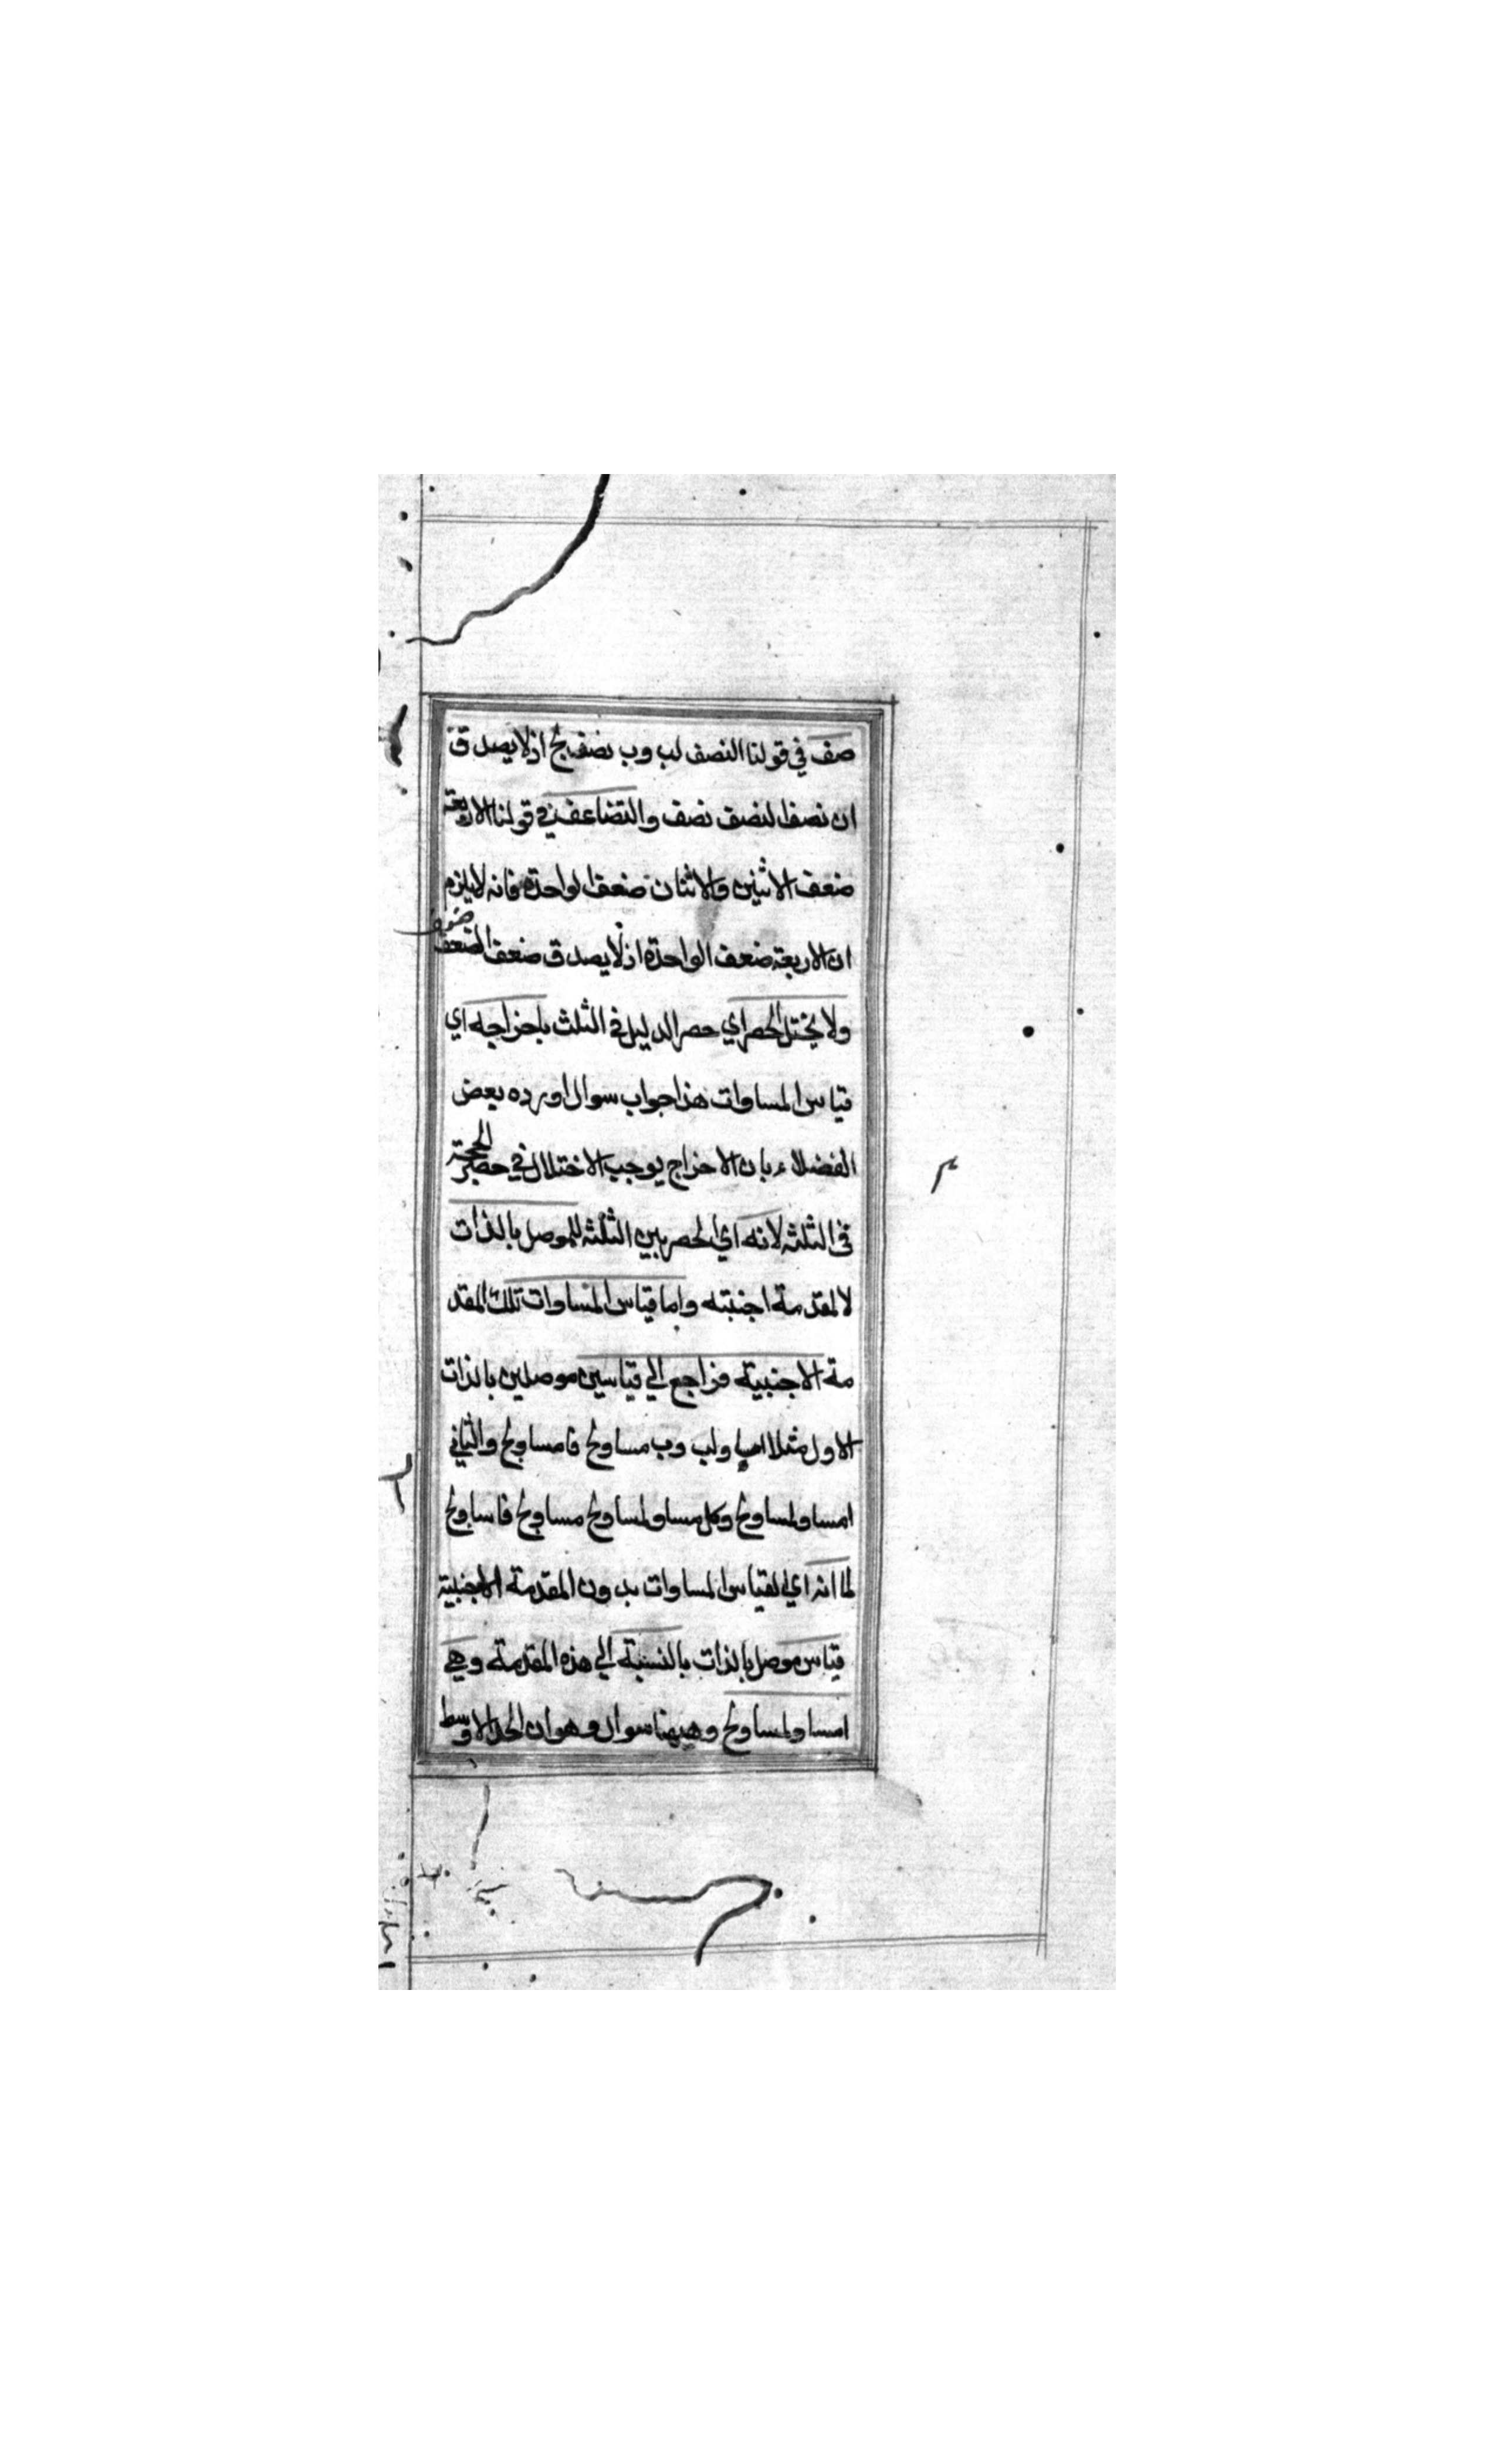 صف في قولنا النصف لب وب نصف لج اذ لا يصدق
ان نصف النصف نصف والتضاعف في قولنا الاربعة
ضعف الاثنين والاثنان ضعف الواحدة فانه لا يلزم
ضعف
ان الاربعة ضعف الواحدة اذ لا يصدق ضعف الضعف
ولا يختل الحصر اي حصر الدليل في الثلث باخراجه اي
قياس المساوات هذا جواب سوال اورده بعض
الفضلاء بان الاخراج يوجب الاختلال في حصر الحجة
في الثلثه لانه اي الحصر بين الثلثه للموصل بالذات
لا لمقدمة اجنبته واما قياس المساوات تلك المقد
مة الاجنبية فراجع الي قياسين موصلين بالذات
الاول مثلا ولب وب مساولج فا مساولج والثاني
ا مساو لمساولج وكل مساو لمساولج مساولج فا ساولج
لما انه اي لقياس المساوات بدون المقدمة الاجنبية
قياس موصل بالذات بالنسبة الي هذه المقدمة وهي
ا مساو لمساولج وههنا سوال وهو ان الحد الاوسط